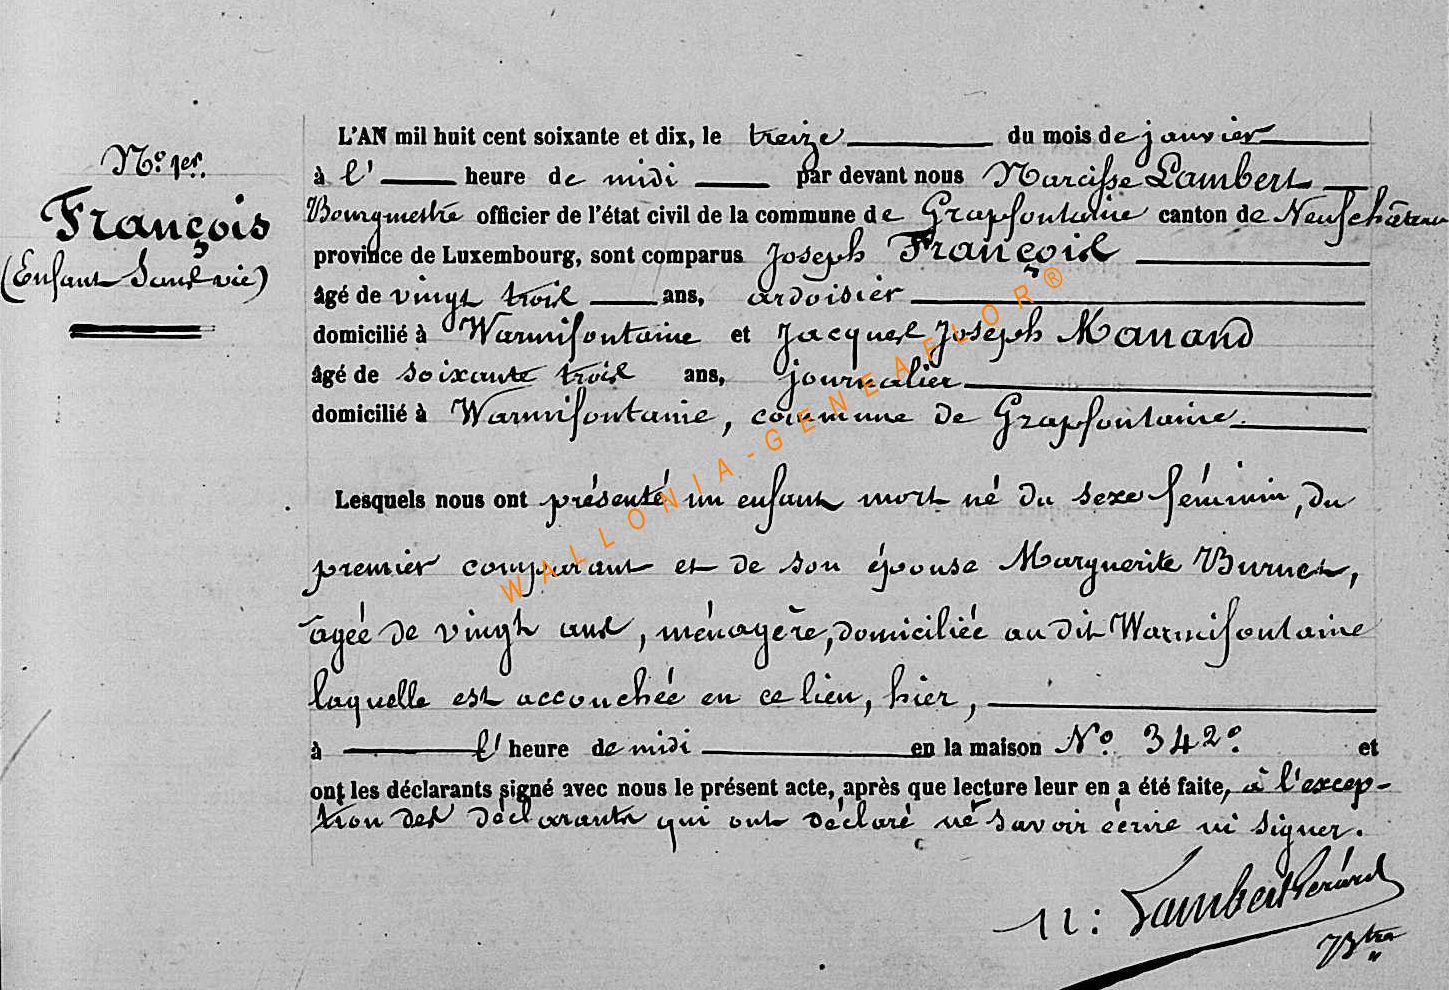 N.º 1er.
François
(Enfant Sans vie)
L'AN mil huit cent soixante et dix, le treize du mois de janvier
à l' heure de midi par devant nous Narcisse Lambert
Bourgmestre officier de l'état civil de la commune de Grapfontaine canton de Neufchâteau
province de Luxembourg, sont comparus Joseph François
âgé de vingt trois ans, ardoisier
domicilié à Warmifontaine et Jacques Joseph Manand
âgé de soixante trois ans, journalier
domicilié à Warmifontaine, commune de Grapfontaine.
Lesquels nous ont présenté un enfant mort né du sexe féminin, du
premier comparant et de son épouse Marguerite Burnet,
âgée de vingt ans, ménagère, domiciliée au dit Warmifontaine
laquelle est accouchée en ce lieu, hier,
à l' heure de midi en la maison Nº 342º et
ont les déclarants signé avec nous le présent acte, après que lecture leur en a été faite, à l'excep-
tion des déclarants qui ont déclaré ne savoir écrire ni signer.
N: Lambert Gérard
Btre
WALLONIA-GENEAFLOR®